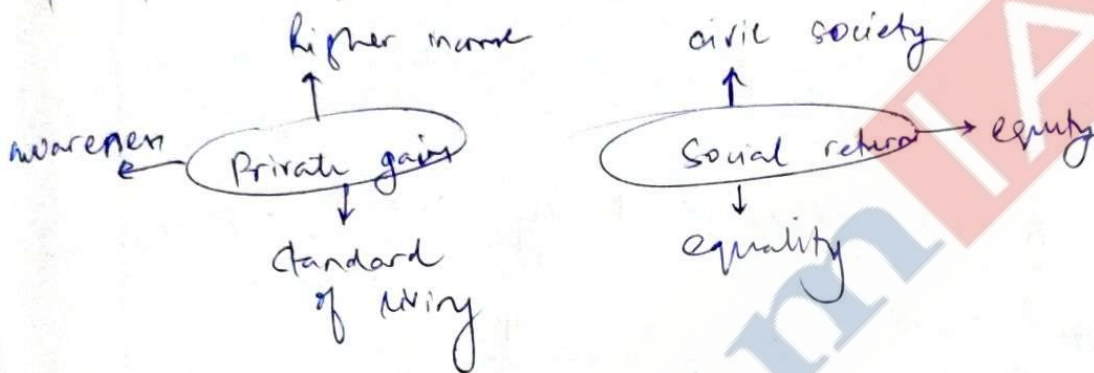 higher income
awareness
Private gain
standard
of living
civil society
Social return
equity
equality
mIA